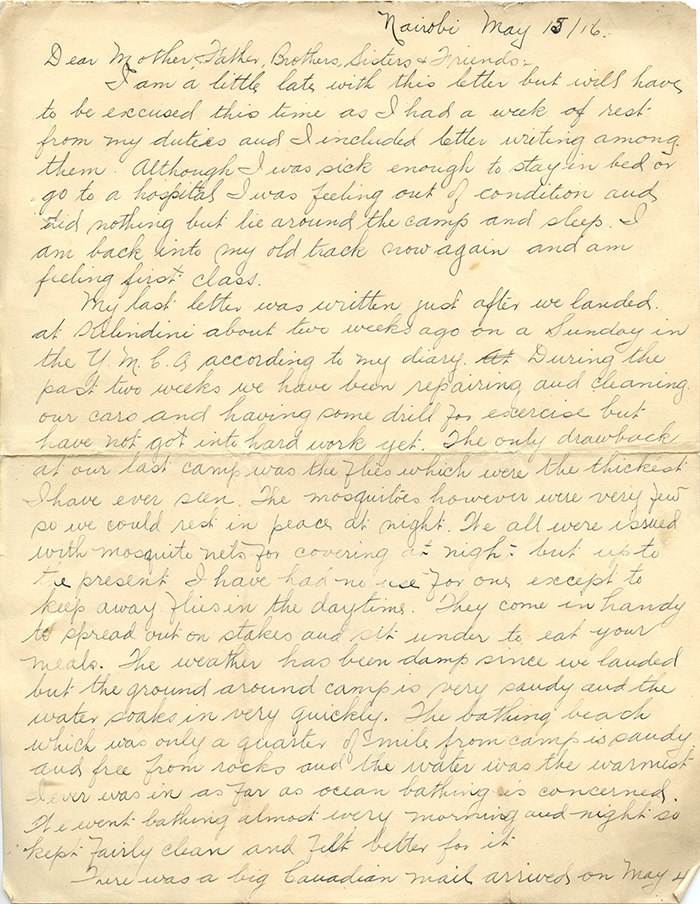 Nairobi May 15/16.
Dear Mother, Father, Brothers, Sisters & Friends:-
I am a little late with this letter but will have
to be excused this time as I had a week of rest
from my duties and I included letter writing among
them. Although I was sick enough to stay in bed or
go to a hospital I was feeling out of condition and
did nothing but lie around the camp and sleep. I
am back into my old track now again and am
feeling first class.
My last letter was written just after we landed
at Kilindini about two weeks ago on a Sunday in
the Y.M.C.A according to my diary. At During the
past two weeks we have been repairing and cleaning
our cars and having some drill for exercise but
have not got into hard work yet. The only drawback
at our last camp was the flies which were the thickest
I have ever seen. The mosquitoes however were very few
so we could rest in peace at night. We all were issued
with mosquito nets for covering at night but up to
the present I have had no use for one except to
keep away flies in the daytime. They come in handy
to spread out on stakes and sit under to eat your
meals. The weather has been damp since we landed
but the ground around camp is very sandy and the
water soaks in very quickly. The bathing beach
which was only a quarter of mile from camp is sandy
and free from rocks and the water was the warmest
I ever was in as far as ocean bathing is concerned.
We went bathing almost every morning and night so
kept fairly clean and felt better for it
There was a big Canadian mail arrived on May 4